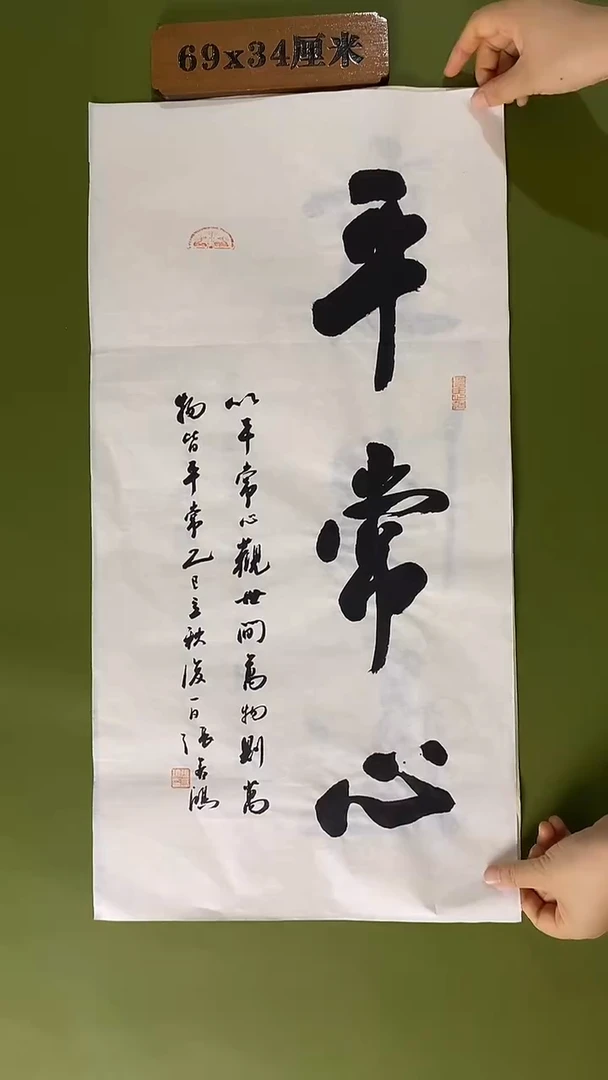 69x34厘米
平常心
以平常心觀世间萬物則萬
物皆平常乙巳立秋後一日張